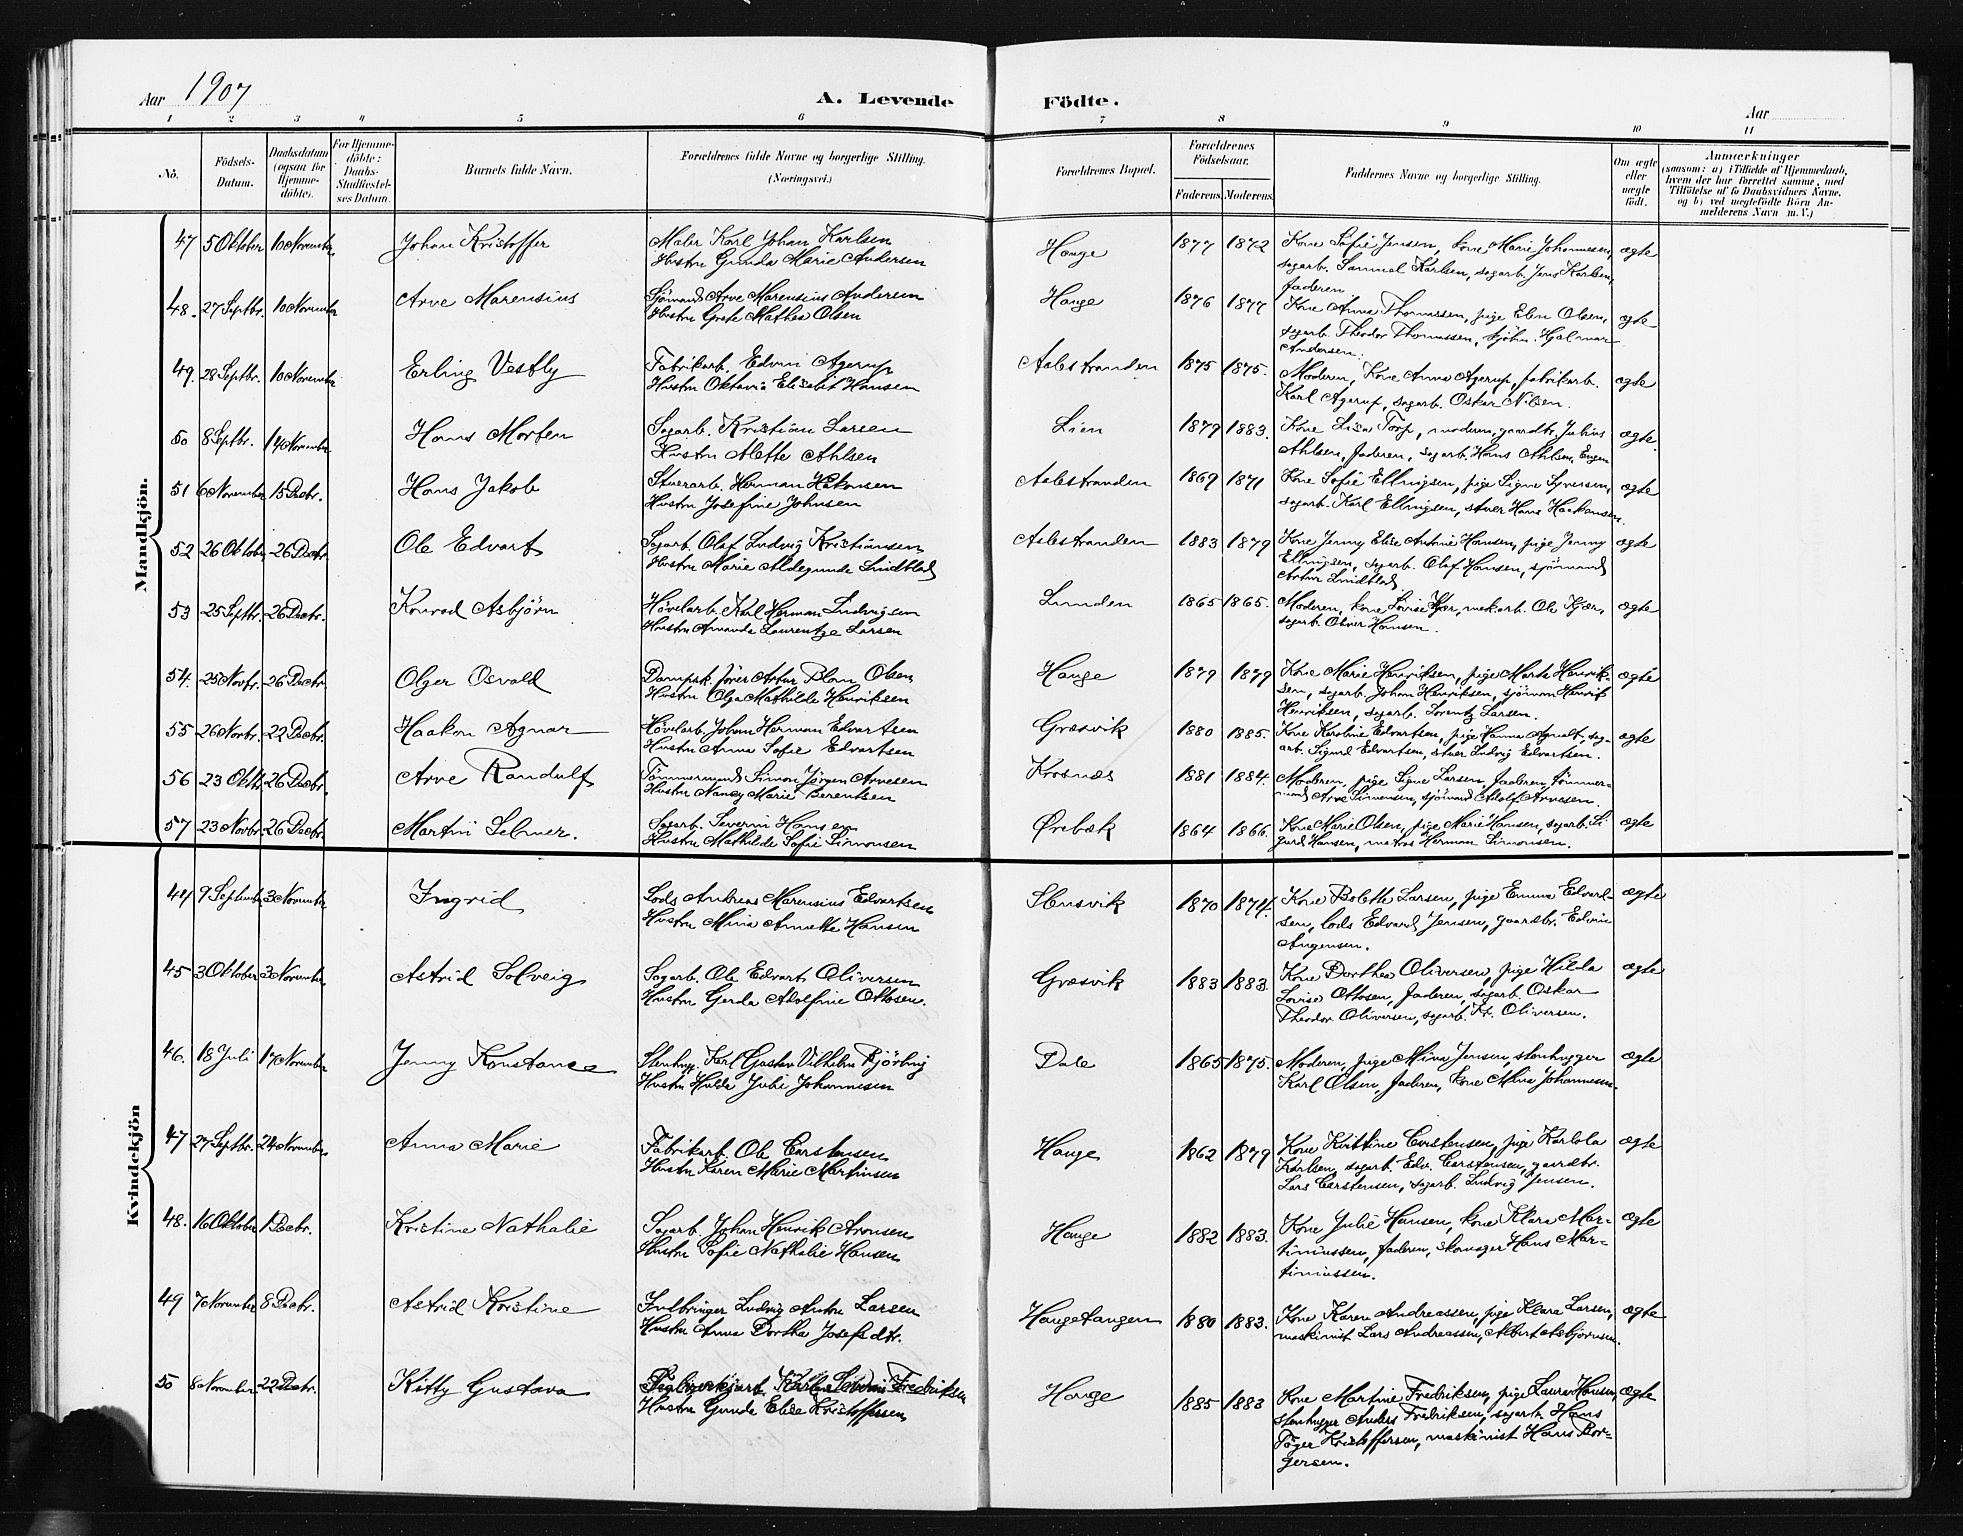 Aar 1907 A. Levende Födte. Aar
1 2 3 4 5 6 7 8 9 10 11
No. Födsels-Datum. Daabsdatum (ogsaa for Hjemme-döbte). For Hjemme-döbte: Daabs-Stadfæstel-ses Datum. Barnets fulde Navn. Forældrenes fulde Navne og borgerlige Stilling. (Næringsvei.) Forældrenes Bopæl. Forældrenes Födselsaar. Faderens. Moderens. Faddernes Navne og borgerlige Stilling. Om ægte eller uægte födt. Anmærkninger
(saasom: a) i Tilfælde af Hjemmedaab, hvem der har forrettet samme, med Tilföielse af to Daabsvidners Navne, og b) ved uægtefödte Börn An-melderens Navn m. V.)
Mandkjön.
47 5 Oktober 10 November Johan Kristoffer Maler Karl Johan Karlsen Hauge 1877 1872 Kone Sofie Jensen, kone Marie Johannessen, ægte
Hustru Gunda Marie Andersen sagarb. Samuel Karlsen, sagarb. Jens Karlsen,
faderen
48. 27 Septbr. 10 November Arve Marensius Sjömand Arve Marensius Andersen Hauge 1876 1877 Kone Anna Thomassen, pige Elen Olsen, ægte
Hustru Grete Mathea Olsen sagarb. Theodor Thomassen, sjöm. Hjalmar
Andersen.
49. 28 Septbr. 10 November Erling Vestly Fabrikarb. Edvin Agerup Aalestranden 1875 1875. Moderen, Kone Anna Agerup, fabrikarb. ægte
Hustru Oktavia Elisabet Hansen Karl Agerup, sagarb. Oskar Nilsen.
50 8 Septbr. 14 November Hans Morten Sagarb. Kristian Larsen Lien 1879 1883. Kone Lisa Torp, moderen, gaardbr. Julius ægte.
Hustru Alette Ahlsen Ahlsen, faderen, sagarb. Hans Ahlsen, Engen
51 6 November 15 Decbr. Hans Jakob Stuerarb. Herman Håkonsen Aalestranden 1869 1871 Kone Sofie Ellingsen, pige Signe Syversen, ægte
Hustru Josefine Johnsen sagarb. Karl Ellingsen, stuer Hans Haakonsen.
52 26 Oktober 26 Decbr. Ole Edvart Sagarb. Olaf Ludvig Kristiansen Aalestranden 1883 1879 Kone Jenny Elise Antonie Hansen, pige Jenny ægte
Hustru Marie Aldegunde Lindblad Ellingsen, sagarb. Olaf Hansen, sjömand
Artur Lindblad
53 25 Septbr. 26 Decbr. Konrad Asbjörn Hövelarb. Karl Herman Ludvigsen Lunden 1865 1865. Moderen, kone Lovise Kjær, mek.arb. Ole Kjær, ægte
Hustru Amanda Laurentze Larsen sagarb. Oliver Hansen.
54. 25 Novbr. 26 Decbr. Olger Osvald Dampsk. förer Artur Blom Olsen Hauge 1879 1879 Kone Marie Henriksen, pige Marta Henrik- ægte
Hustru Olga Mathilde Henriksen sen, sagarb. Johan Henriksen, sjöman Henrik
Henriksen, sagarb. Lorentz Larsen.
55 26 Novbr. 22 Decbr. Haakon Agnar Hövelarb. Johan Herman Edvartsen Græsvik 1880 1885. Kone Karoline Edvartsen, pige Hanna Agnalt, sag- ægte
Hustru Anna Sofie Edvartsen arb. Sigurd Edvartsen, stuer Ludvig Edvartsen.
56 23 Oktb. 26 Decbr. Arve Randulf Tömmermand Simon Jörgen Arvesen Krosnæs 1881 1884. Moderen, pige Signe Larsen, faderen, tömmer- ægte
Hustru Nancy Marie Berentsen mand Arve Simensen, sjömand Adolf Arvesen.
57 23 Novbr. 26 Decbr. Martin Selmer. Sagarb. Severin Hansen Ørebæk 1864 1866. Kone Marie Olsen, pige Marie Hansen, sagarb. Si ægte
Hustru Mathilde Sofie Simonsen gurd Hansen, matros Herman Simonsen.
Kvindekjön
44 9 September 3 November Ingrid Lods Andreas Marensius Edvartsen Slevsvik 1870 1874. Kone Bolette Larsen, pige Emma Edvard- ægte
Hustru Mina Annette Hansen sen, lods Edvard Jensen, gaardbr. Edvin
Angensen.
45 3 Oktober 3 November Astrid Solveig Sagarb. Ole Edvart Oliversen Græsvik 1883 1883. Kone Dorthea Oliversen, pige Hilda ægte
Hustru Gerda Adolfine Ottosen. Lovise Ottosen, faderen, sagarb. Oskar
Theodor Oliversen, sagarb. Fr. Oliversen.
46. 18 Juli 17 November Jenny Konstance Stenhug. Karl Gustav Vilhelm Björling Dale 1865 1875. Moderen, pige Mina Jensen, stenhugger ægte
Hustru Hulda Julie Johannesen Karl Olsen, faderen, kone Mina Johannesen
47 27 Septbr. 24 November Anna Marie Fabrikarb. Ole Carstensen Hauge 1862 1879 Kone Kristine Carstensen, pige Karlola ægte
Hustru Karen Marie Martinsen Karlsen, sagarb. Edv. Carstensen, gaardbr.
Lars Carstensen, sagarb. Ludvig Jensen.
48. 16 Oktober 1 Decbr. Kristine Nathalie Sagarb. Johan Henrik Aronsen Hauge 1882 1883. Kone Julie Hansen, kone Klara Mar- ægte
Hustru Sofie Nathalie Hansen tiniussen, faderen, skomager Hans Mar-
tiniussen.
49 7 November 8 Decbr. Astrid Kristine Indbringer Ludvig Anton Larsen Haugetangen 1880 1883. Kone Karen Andreassen, pige Klara Larsen, ægte
Hustru Anna Dorthea Josefsdtr. maskinist Lars Andreassen, Albert Asbjörnsen.
50 8 November 22 Decbr. Kitty Gustava Karl Severin Fredriksen Hauge 1885 1883 Kone Martine Fredriksen, pige Laura Hansen, ægte
Hustru Gunda Elise Kristoffersen stenhugger Anders Fredriksen, sagarb. Hans
Töger Kristoffersen, maskinist Hans Bor-
gersen.